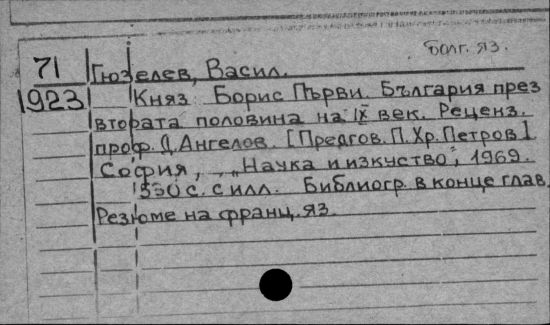 Болг. яз.
71 Гюзелев, Васил.
1923 Княз Борис Първи. България през
втората половина на IX век. Реценз.
проф. Д. Ангелов. [Предгов. П. Хр. Петров]
София, „Наука и изкуство", 1969.
530 с. с илл. Библиогр. в конце глав.
Резюме на франц. яз.